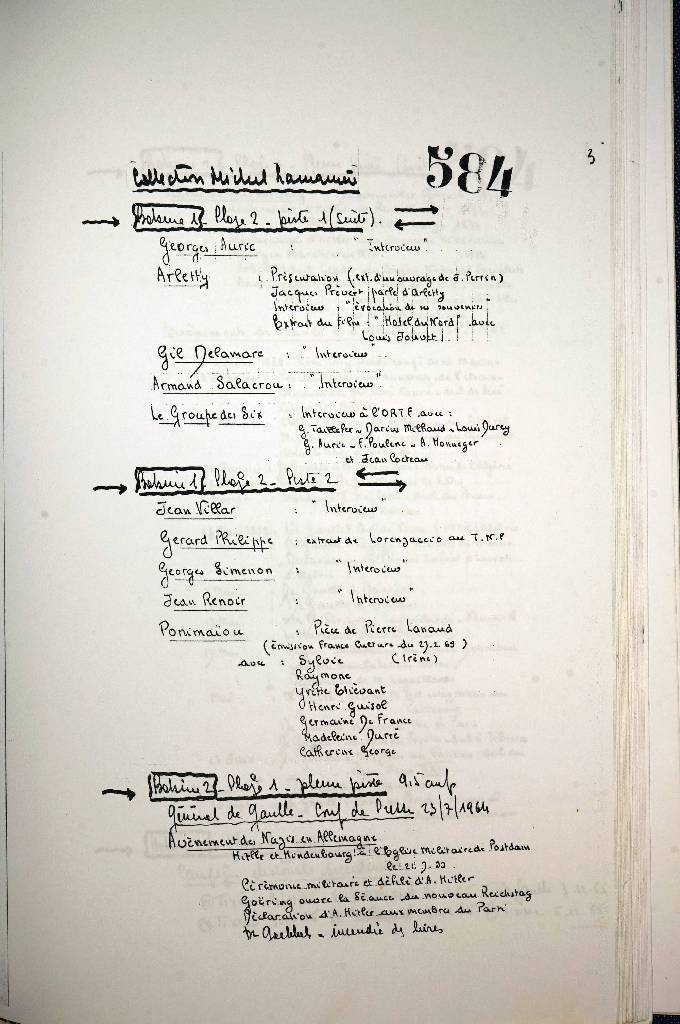 3
584
Collection Michel
Bobine 1 - Plage 2 - piste 1 (suite).
Georges Auric : "Interview"
Arletty : Présentation (ext. d'un ouvrage de J. Perrin)
Jacques Prévert parle d'Arletty
Interview : "évocation de ses souvenirs"
Extrait du Film : "Hotel du Nord" avec
Louis Jouvet
Gil Delamare : "Interview"
Armand Salacrou : "Interview"
Le Groupe des Six : Interview à l'ORTF avec :
G. Tailleferre - Darius Milhaud - Louis Durey
G. Auric - F. Poulenc - A. Honneger
et Jean Cocteau
Bobine 1 - Plage 2 - Piste 2
Jean Villar : "Interview"
Gerard Philippe : extrait de Lorenzaccio au T.N.P
Georges Simenon : "Interview"
Jean Renoir : "Interview"
Ponimaïou : Pièce de Pierre Lanaud
(émission France Culture du 27.2.69)
avec : Sylvie (Irène)
Raymone
Yvette Etiévant
Henri Guisol
Germaine De France
Madeleine Durré
Catherine George
Bobine 2 - Plage 1 - pleine piste 9,5 cm/s
Général de Gaulle - Conf de Presse 23/7/1964
Avènement des Nazis en Allemagne
Hitler et Hindenbourg à l'Eglise Militaire de Postdam
le 21.3.33
Cérémonie militaire et défilé d'A. Hitler
Goëring ouvre la Séance du nouveau Reichstag
Déclaration d'A. Hitler aux membres du Parti
Dr Goebbels - incendie des livres